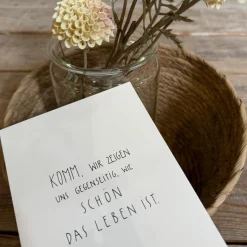 KOMM, WIR ZEIGEN
UNS GEGENSEITIG, WIE
SCHÖN
DAS LEBEN IST.